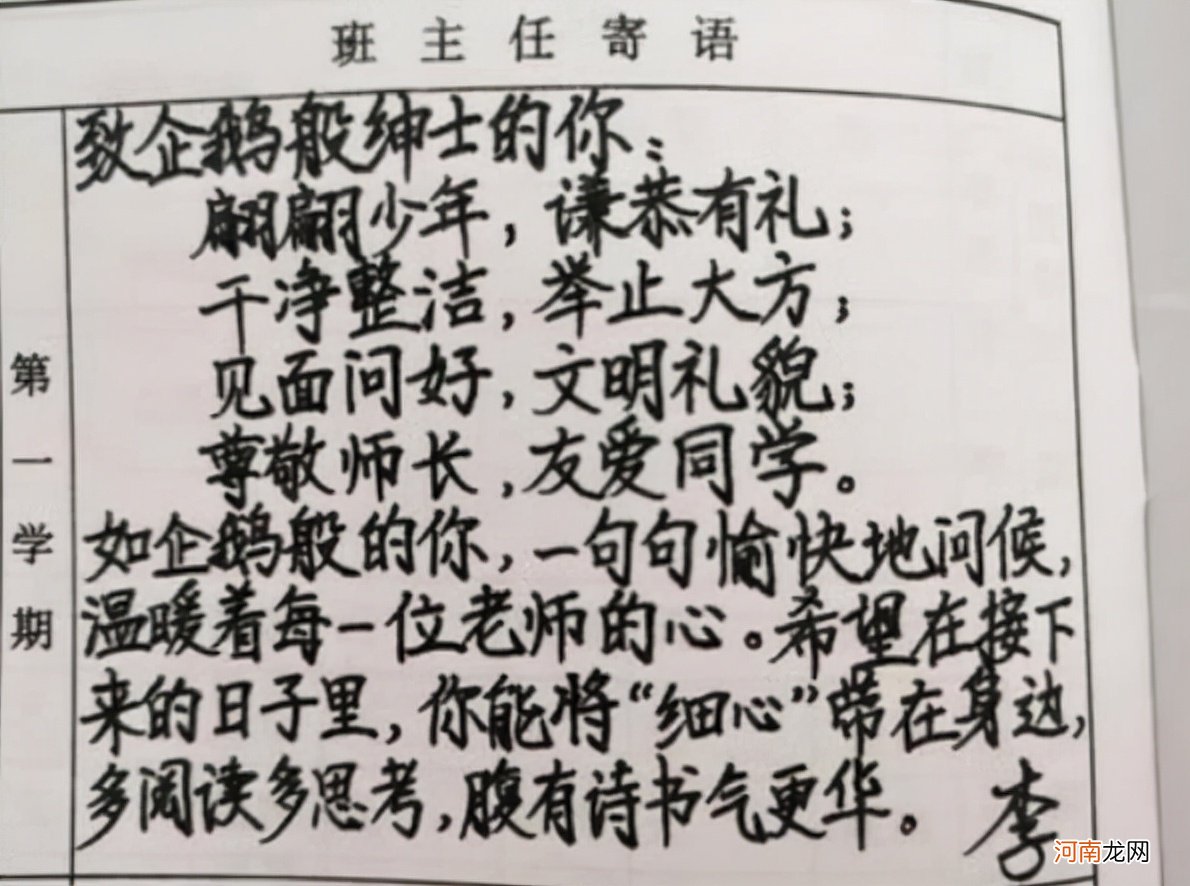 班主任寄语
第一学期
致企鹅般绅士的你：
翩翩少年，谦恭有礼；
干净整洁，举止大方；
见面问好，文明礼貌；
尊敬师长，友爱同学。
如企鹅般的你，一句句愉快地问候，
温暖着每一位老师的心。希望在接下
来的日子里，你能将“细心”带在身边，
多阅读多思考，腹有诗书气更华。
李
河南龙网